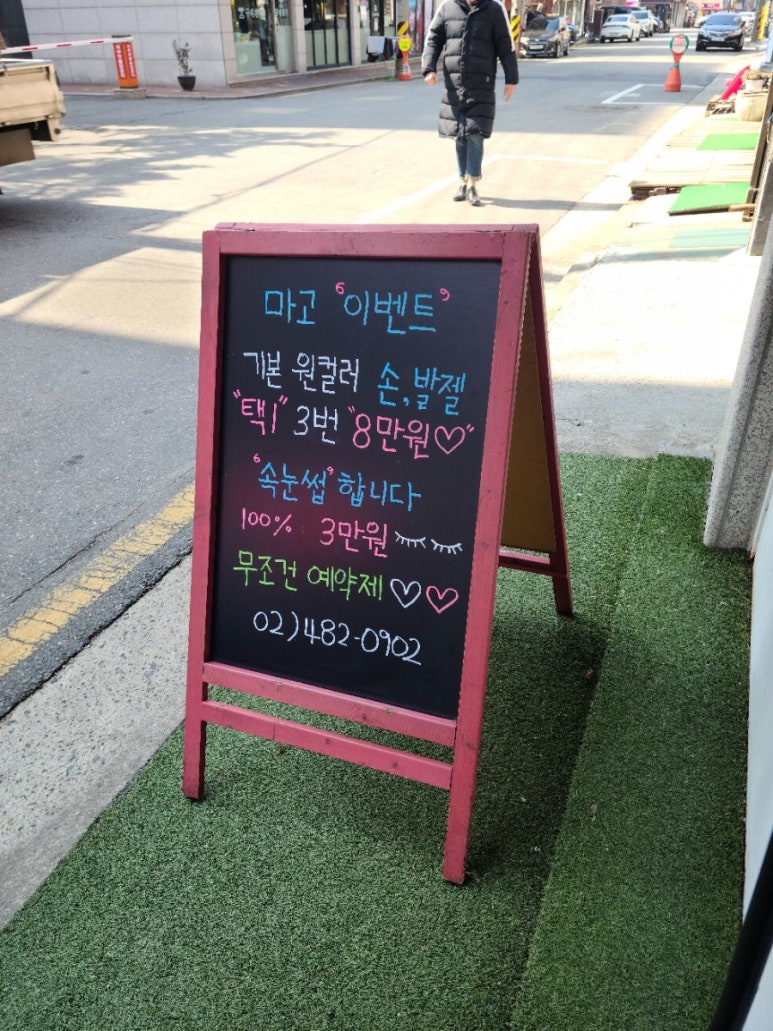 마고 "이벤트"
기본 원컬러 손,발젤
"택1" 3번 "8만원♡"
"속눈썹" 합니다
100% 3만원
무조건 예약제! ♡♡
02)482-0902